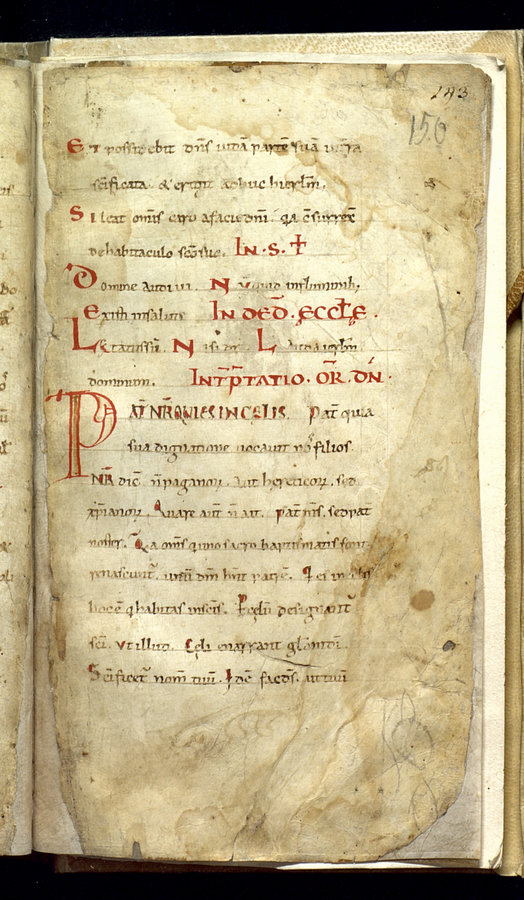 143
150
Et possidebit dns iudā partē suā in tra
scificata. & eligit adhuc hierlm.
Sileat omis caro a facie dni. q̄a csurrex
de habitaculo scō suo. In . s. ✝
Domine audiui. Nūquid in fluminib;
Existi in salutē In DED. ECCŁE.
Lętatus sū. Nisi dn̄. Lauda ierlm
dominum. INTPTATIO. OR. DN.
PAT NR QUI ES IN CELIS. Pat quia
sua dignatione uocauit nos filios.
NR dic. n paganor. aut hereticor. sed
xpianor. Quare aut n ait. pat mis. sed pat
noster. Q̄a omis qui uno sacro baptismatis font
renascunt. unū dm hnt patrē. Q es in celis
hoc ē q habitas in scis. P celū designant
sci. ut illud. Celi enarrant glam di.
Scificet nom tuū. Id ē fac ds. ut tuū